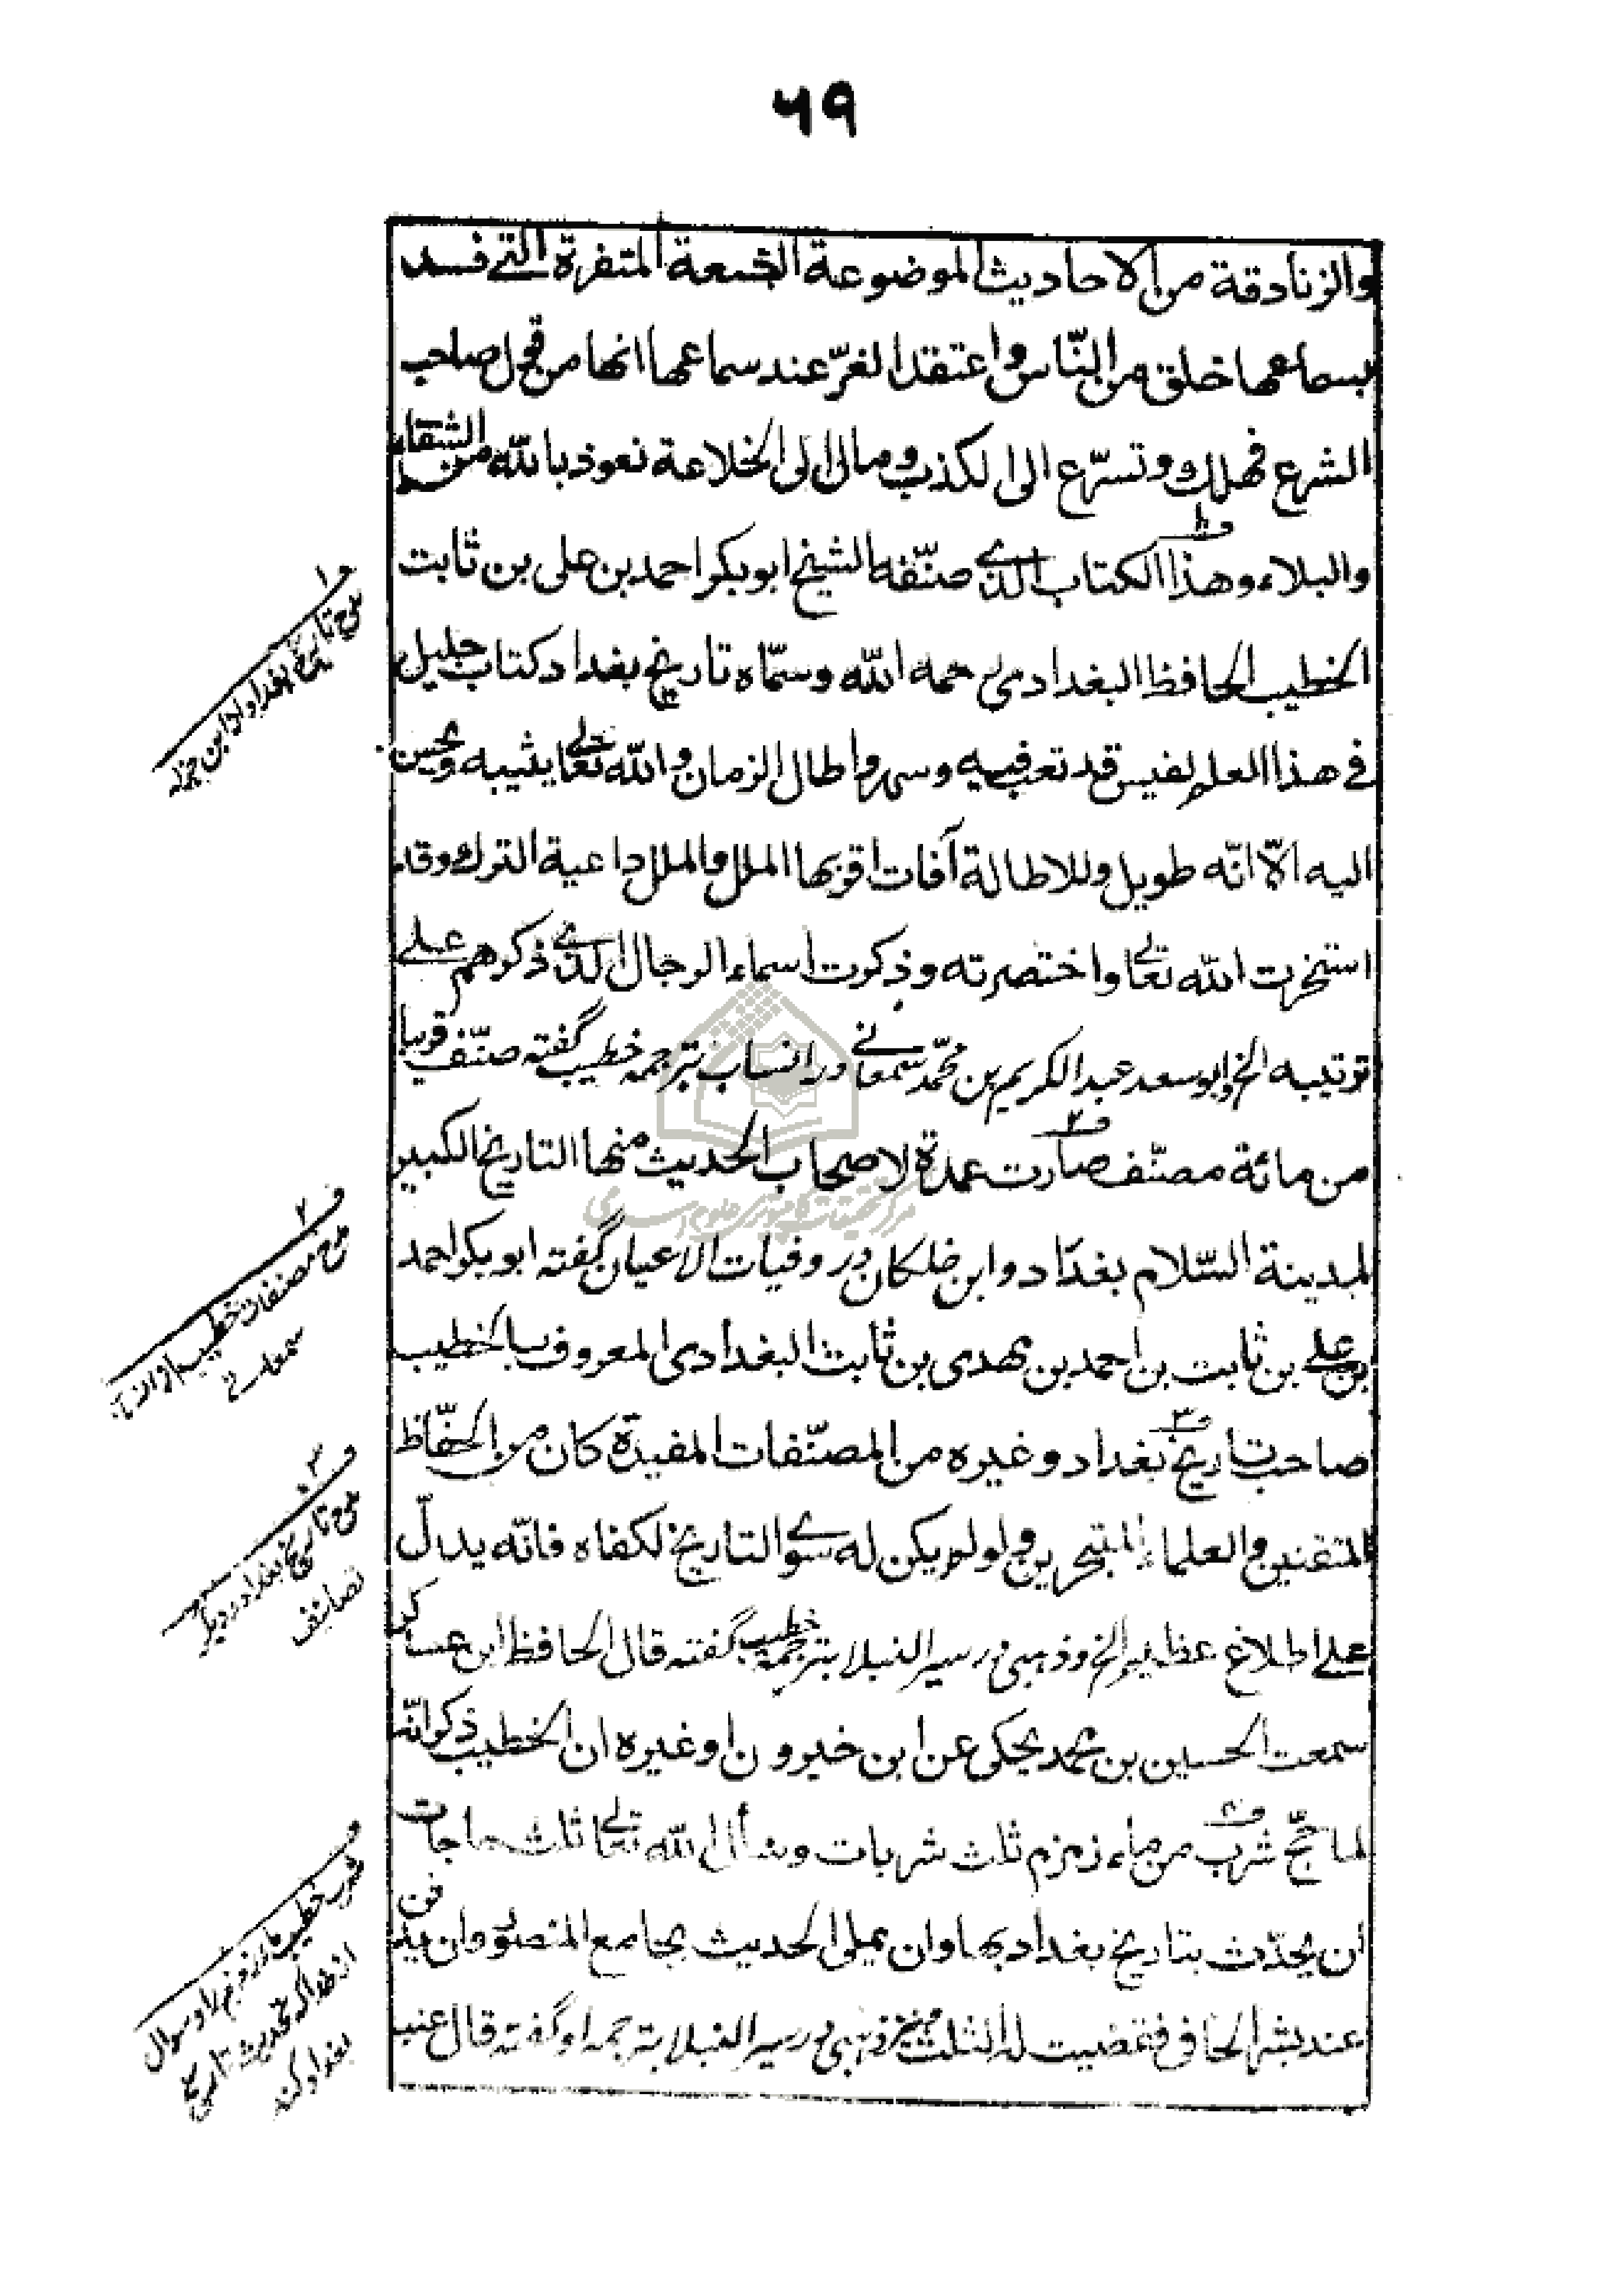 ٦٩
والزنادقة من الاحاديث الموضوعة الشمعة المتفرة التي فسد
بسماعها خلق من النّاس واعتقد الغرّ عند سماعها انها من قول صاحب
الشرع فهلك وتسرّع الى الكذب ومال الى الخلاعة نعوذ بالله من الشقاء
والبلاء وهذا الكتاب الذي صنّفه الشيخ ابو بكر احمد بن على بن ثابت
الخطيب الحافظ البغدادى رحمه الله وسمّاه تاريخ بغداد كتاب جليل
فى هذا العلم نفيس قد تعب فيه وسهر واطال الزمان والله تعالى يثيبه ويحسن
اليه الّا انّه طويل وللاطالة آفات اقربها الملل والملل داعية الترك وقد
استخرت الله تعالى واختصرته وذكرت اسماء الرجال الذي ذكرهم على
ترتيبه الخ وابو سعد عبد الكريم بن محمّد سمعانى در انساب بترجمه خطيب گفته صنّف قريبا
من مائة مصنّف صارت عمدة لاصحاب الحديث منها التاريخ الكبير
لمدينة السّلام بغداد وابن خلكان در وفيات الاعيان گفته ابو بكر احمد
بن على بن ثابت بن احمد بن مهدى بن ثابت البغدادى المعروف بالخطيب
صاحب تاريخ بغداد وغيره من المصنّفات المفيدة كان من الحفّاظ
المتقنين والعلماء المتبحرين ولو لم يكن له سوى التاريخ لكفاه فانّه يدلّ
على اطلاع عظيم الخ وذهبى در سير النبلاء بترجمه خطيب گفته قال الحافظ ابن عساكر
سمعت الحسين بن محمد يحكى عن ابن خيرون او غيره ان الخطيب ذكر انّه
لما حجّ شرب من ماء زمزم ثلث شربات وسأل الله تعالى ثلث حاجات
أن يحدّث بتاريخ بغداد بها وان يملى الحديث بجامع المنصور وان يدفن
عند بشر الحافى فقضيت له الثلث ونيز ذهبى در سير النبلاء بترجمه او گفته قال
و١
مدح تاريخ بغداد از ابن جزله
و٢
مدح مصنفات خطيب از
سمعانى
و٣
مدح تاريخ بغداد و ديگر
تصانيف
و
شرب خطيب ماء زمزم را وسوال
از خدا كه تحديث تاريخ
بغداد كند
مركز تحقيقات كامپيوترى علوم اسلامى